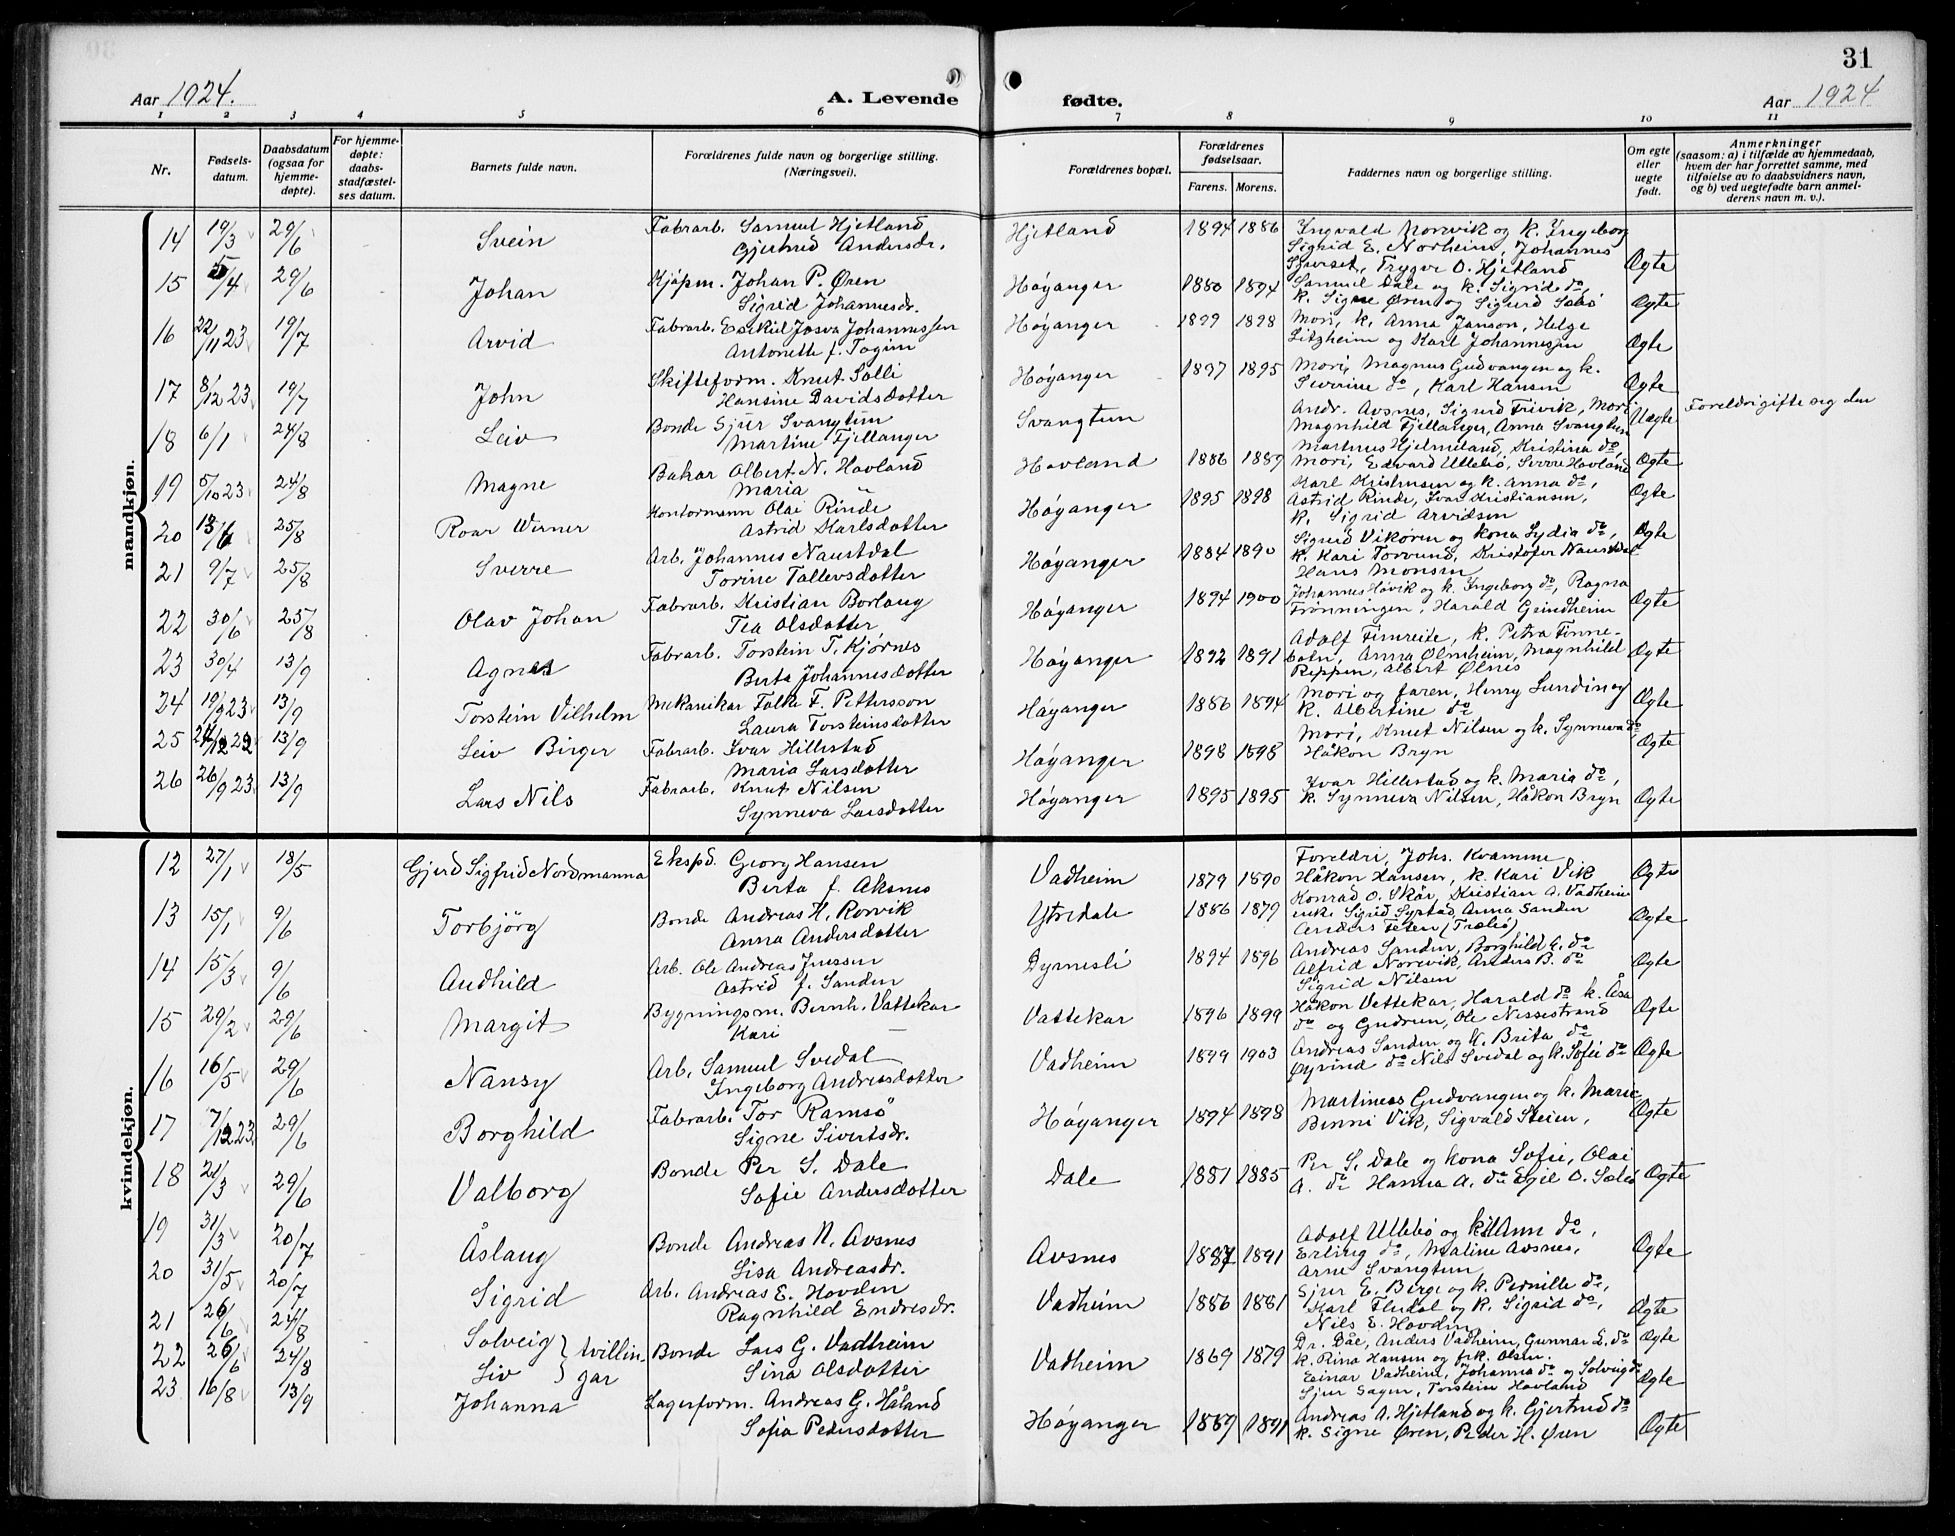 31
Aar 1924. A. Levende fødte. Aar 1924
1 2 3 4 5 6 7 8 9 10 11
Nr.
Fødsels-
datum.
Daabsdatum
(ogsaa for
hjemme-
døpte).
For hjemme-
døpte:
daabs-
stadfæstel-
ses datum.
Barnets fulde navn.
Forældrenes fulde navn og borgerlige stilling.
(Næringsvei).
Forældrenes bopæl.
Forældrenes
fødselsaar.
Farens. Morens.
Faddernes navn og borgerlige stilling.
Om egte
eller
uegte
født.
Anmerkninger
(saasom: a) i tilfælde av hjemmedaab,
hvem der har forrettet samme, med
tilføielse av to daabsvidners navn,
og b) ved uegtefødte barn anmel-
derens navn m. v.).
mandkjøn.
14 19/3 29/6 Svein Fabrarb. Samuel Hjetland
Gjertrud Andersdr.
Hjetland 1894 1886 Ingvald Norevik og k. Ingeborg
Sigrid E. Norheim, Johannes
Trygve O. Hjetland Ægte
15 5/4 29/6 Johan Kjøpm. Johan P. Øren
Sigrid Johannesdr.
Høyanger 1880 1894 Samuel Dale og k. Sigrid do,
k. Signe Øren og Sigurd Sæbø Ægte
16 22/11 23 19/7 Arvid Fabrarb. Esekiel Josva Johannessen
Antonette f. Togim
Høyanger 1899 1898 Mori, k. Anna Janson, Helge
Litzheim og Karl Johannessen Ægte
17 8/12 23 19/7 John Skifteform. Knut Solli
Hansine Davidsdotter
Høyanger 1897 1895 Mori, Magnus Gudvangen og k.
Severine do, Karl Hansen Ægte
18 6/1 24/8 Leiv Bonde Sjur Svangtun
Martine Fjellanger
Svangtun Andr. Avsnes, Sigurd Trivik, Mori
Magnhild Fjellanger, Anna Svangtun Uægte Foreldri gifte seg der
19 5/10 23 24/8 Magne Bakar Albert N. Hovland
Maria "
Hovland 1886 1889 Martnus Hjelmeland, Kristina do,
Mori, Edvard Ullebø, Sverre Hovland Ægte
20 13/6 25/8 Roar Werner Kontormann Olai Rinde
Astrid Karlsdotter
Høyanger 1895 1898 Karl Kristiansen og k. Anna do,
Astrid Rinde, Ivar Kristiansen,
k. Sigrid Arvidsen Ægte
21 9/7 25/8 Sverre Arb. Johannes Naustdal
Torine Tollevsdotter
Høyanger 1884 1890 Sigurd Vikøren og kona Lydia do,
k. Kari Torvund, Kristofer Naustdal
Hans Monsen Ægte
22 30/6 25/8 Olav Johan Fabrarb. Kristian Borlaug
Tea Olsdotter
Høyanger 1894 1900 Johannes Høvik og k. Ingeborg do, Ragna
Frønningen, Harald Grindheim Ægte
23 30/4 13/9 Agnes Fabrarb. Torstein T. Kjørnes
Berta Johannesdotter
Høyanger 1892 1891 Adolf Fimreite, k. Petra Finne-
Anna Olmheim, Magnhild
Reppen, Albert Ølnes Ægte
24 19/9 23 13/9 Torstein Vilhelm Mekanikar Folke F. Pettersson
Laura Torsteinsdotter
Høyanger 1886 1894 Mori og faren, Henry Lundin og
k. Albertine do Ægte
25 24/12 22 13/9 Leiv Birger Fabrarb. Ivar Hillestad
Maria Larsdotter
Høyanger 1898 1898 Mori, Knut Nilsen og k. Synneva do
Håkon Bryn Ægte
26 26/9 23 13/9 Lars Nils Fabrarb. Knut Nilsen
Synneva Larsdotter
Høyanger 1895 1895 Ivar Hillestad og k. Maria do,
k. Synneva Nilsen, Håkon Bryn Ægte
kvindekjøn.
12 27/1 18/5 Gjerd Sigfrid Nordmanna Ekspd. Georg Hansen
Berta f. Aksnes
Vadheim 1879 1890 Foreldri, Johs. Kvamme
Håkon Hansen, k. Kari Vik Ægte
13 15/1 9/6 Torbjörg Bonde Andreas H. Rorvik
Anna Andersdotter
Ytredale 1886 1879 Konrad O. Skår, Kristian A. Vadheim
enke Sigrid Systad, Anna Sanden
Anders Teten Ægte
14 15/3 9/6 Audhild Arb. Ole Andreas Jnessen
Astrid f. Sanden
Dyrnesli 1894 1896 Andreas Sanden, Borghild A. do
Alfrid Norevik, Anders B. do
Sigrid Nilsen Ægte
15 29/2 29/6 Margit Bygningsm. Bernh. Vattekar
Kari —
Vattekar 1896 1899 Håkon Vattekar, Harald do k. Åsa
do og Gudrun, Ole Nessestrand Ægte
16 16/5 29/6 Nansy Arb. Samuel Svedal
Ingeborg Andreasdotter
Vadheim 1899 1903 Andreas Sanden og k. Brita do
Øyvind do Nils Svedal og k. Sofie do Ægte
17 7/12 23 29/6 Borghild Fabrarb. Tor Ramsö
Signe Sivertsdr.
Høyanger 1894 1898 Martineas Gudvangen og k. Marie,
Benni Vik, Sigvald Steien, Ægte
18 21/3 29/6 Valborg Bonde Per S. Dale
Sofie Andersdotter
Dale 1881 1885 Per S. Dale og kona Sofie, Olai
A. do Hanna A. do Egil O. Sæbø Ægte
19 31/3 20/7 Åslaug Bonde Andreas N. Avsnes
Lisa Andreasdr.
Avsnes 1887 1891 Adolf Ullebø og k. Ann do,
Erling do, Maline Avsnes,
Arne Svangtun Ægte
20 31/5 20/7 Sigrid Arb. Andreas E. Hovden
Ragnhild Endresdr.
Vadheim 1886 1881 Sjur E. Berge og k. Pernille do,
Karl Flidal og k. Sigrid do,
Nils E. Hovden Ægte
21 26/6 24/8 Solveig } tvillin
22 26/6 24/8 Liv } gar Bonde Lars G. Vadheim
Sina Olsdotter
Vadheim 1869 1879 Dr. Dåe, Anders Vadheim, Gunnar L. do
k. Rina Hansen og frk. Olsen. Ægte
Einar Vadheim, Johanna do og Solveig do
Sjur Sagen, Torstein Hovland Ægte
23 16/8 13/9 Johanna Lagerform. Andreas G. Håland
Sofia Pedersdotter
Høyanger 1889 1891 Andreas A. Hjetland og k. Gjertrud do
k. Signe Øren, Peder H. Øren Ægte